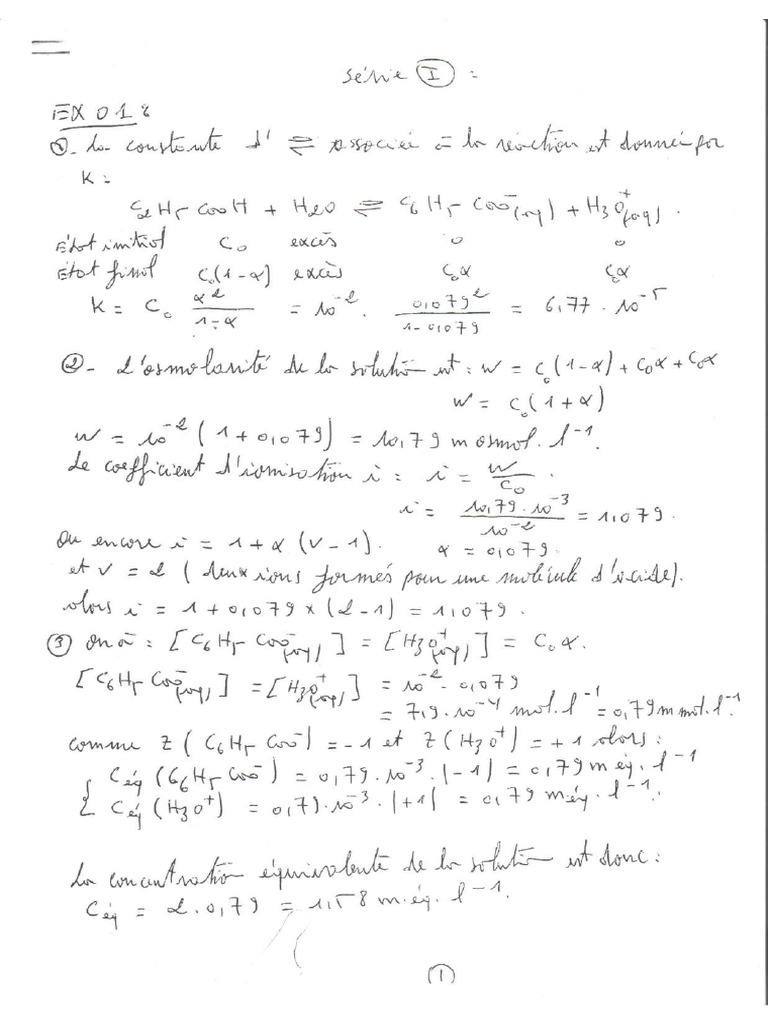 Série I :
EX 01 :
①. La constante d' ⇌ associée à la réaction est donnée par
K :
C6H5 COOH + H2O ⇌ C6H5 COO⁻(aq) + H3O⁺(aq).
Etat initial C₀ excès 0 0
Etat final C₀(1-α) excès C₀α C₀α
K = C₀ α²/(1-α) = 10⁻². 0,079²/(1-0,079) = 6,77 . 10⁻⁵
②- L'osmolarité de la solution est : W = C₀(1-α) + C₀α + C₀α
W = C₀(1+α)
W = 10⁻² (1 + 0,079) = 10,79 m osmol. l⁻¹.
Le coefficient d'ionisation i : i = W/C₀.
i = 10,79 . 10⁻³/10⁻² = 1,079.
Ou encore i = 1 + α (ν - 1). α = 0,079
et ν = 2 (deux ions formés pour une molécule d'acide).
alors i = 1 + 0,079 × (2-1) = 1,079.
③ on à : [C6H5 COO⁻(aq)] = [H3O⁺(aq)] = C₀ α.
[C6H5 COO⁻(aq)] = [H3O⁺(aq)] = 10⁻² . 0,079
= 7,9 . 10⁻⁴ mol. l⁻¹ = 0,79 m mol. l⁻¹.
comme Z (C6H5 COO⁻) = -1 et Z (H3O⁺) = +1 alors :
{ Céq (C6H5 COO⁻) = 0,79 . 10⁻³ . |-1| = 0,79 m éq. l⁻¹
Céq (H3O⁺) = 0,79 . 10⁻³ . |+1| = 0,79 m éq. l⁻¹.
La concentration équivalente de la solution est donc :
Céq = 2 . 0,79 = 1,58 m.éq. l⁻¹.
(1)